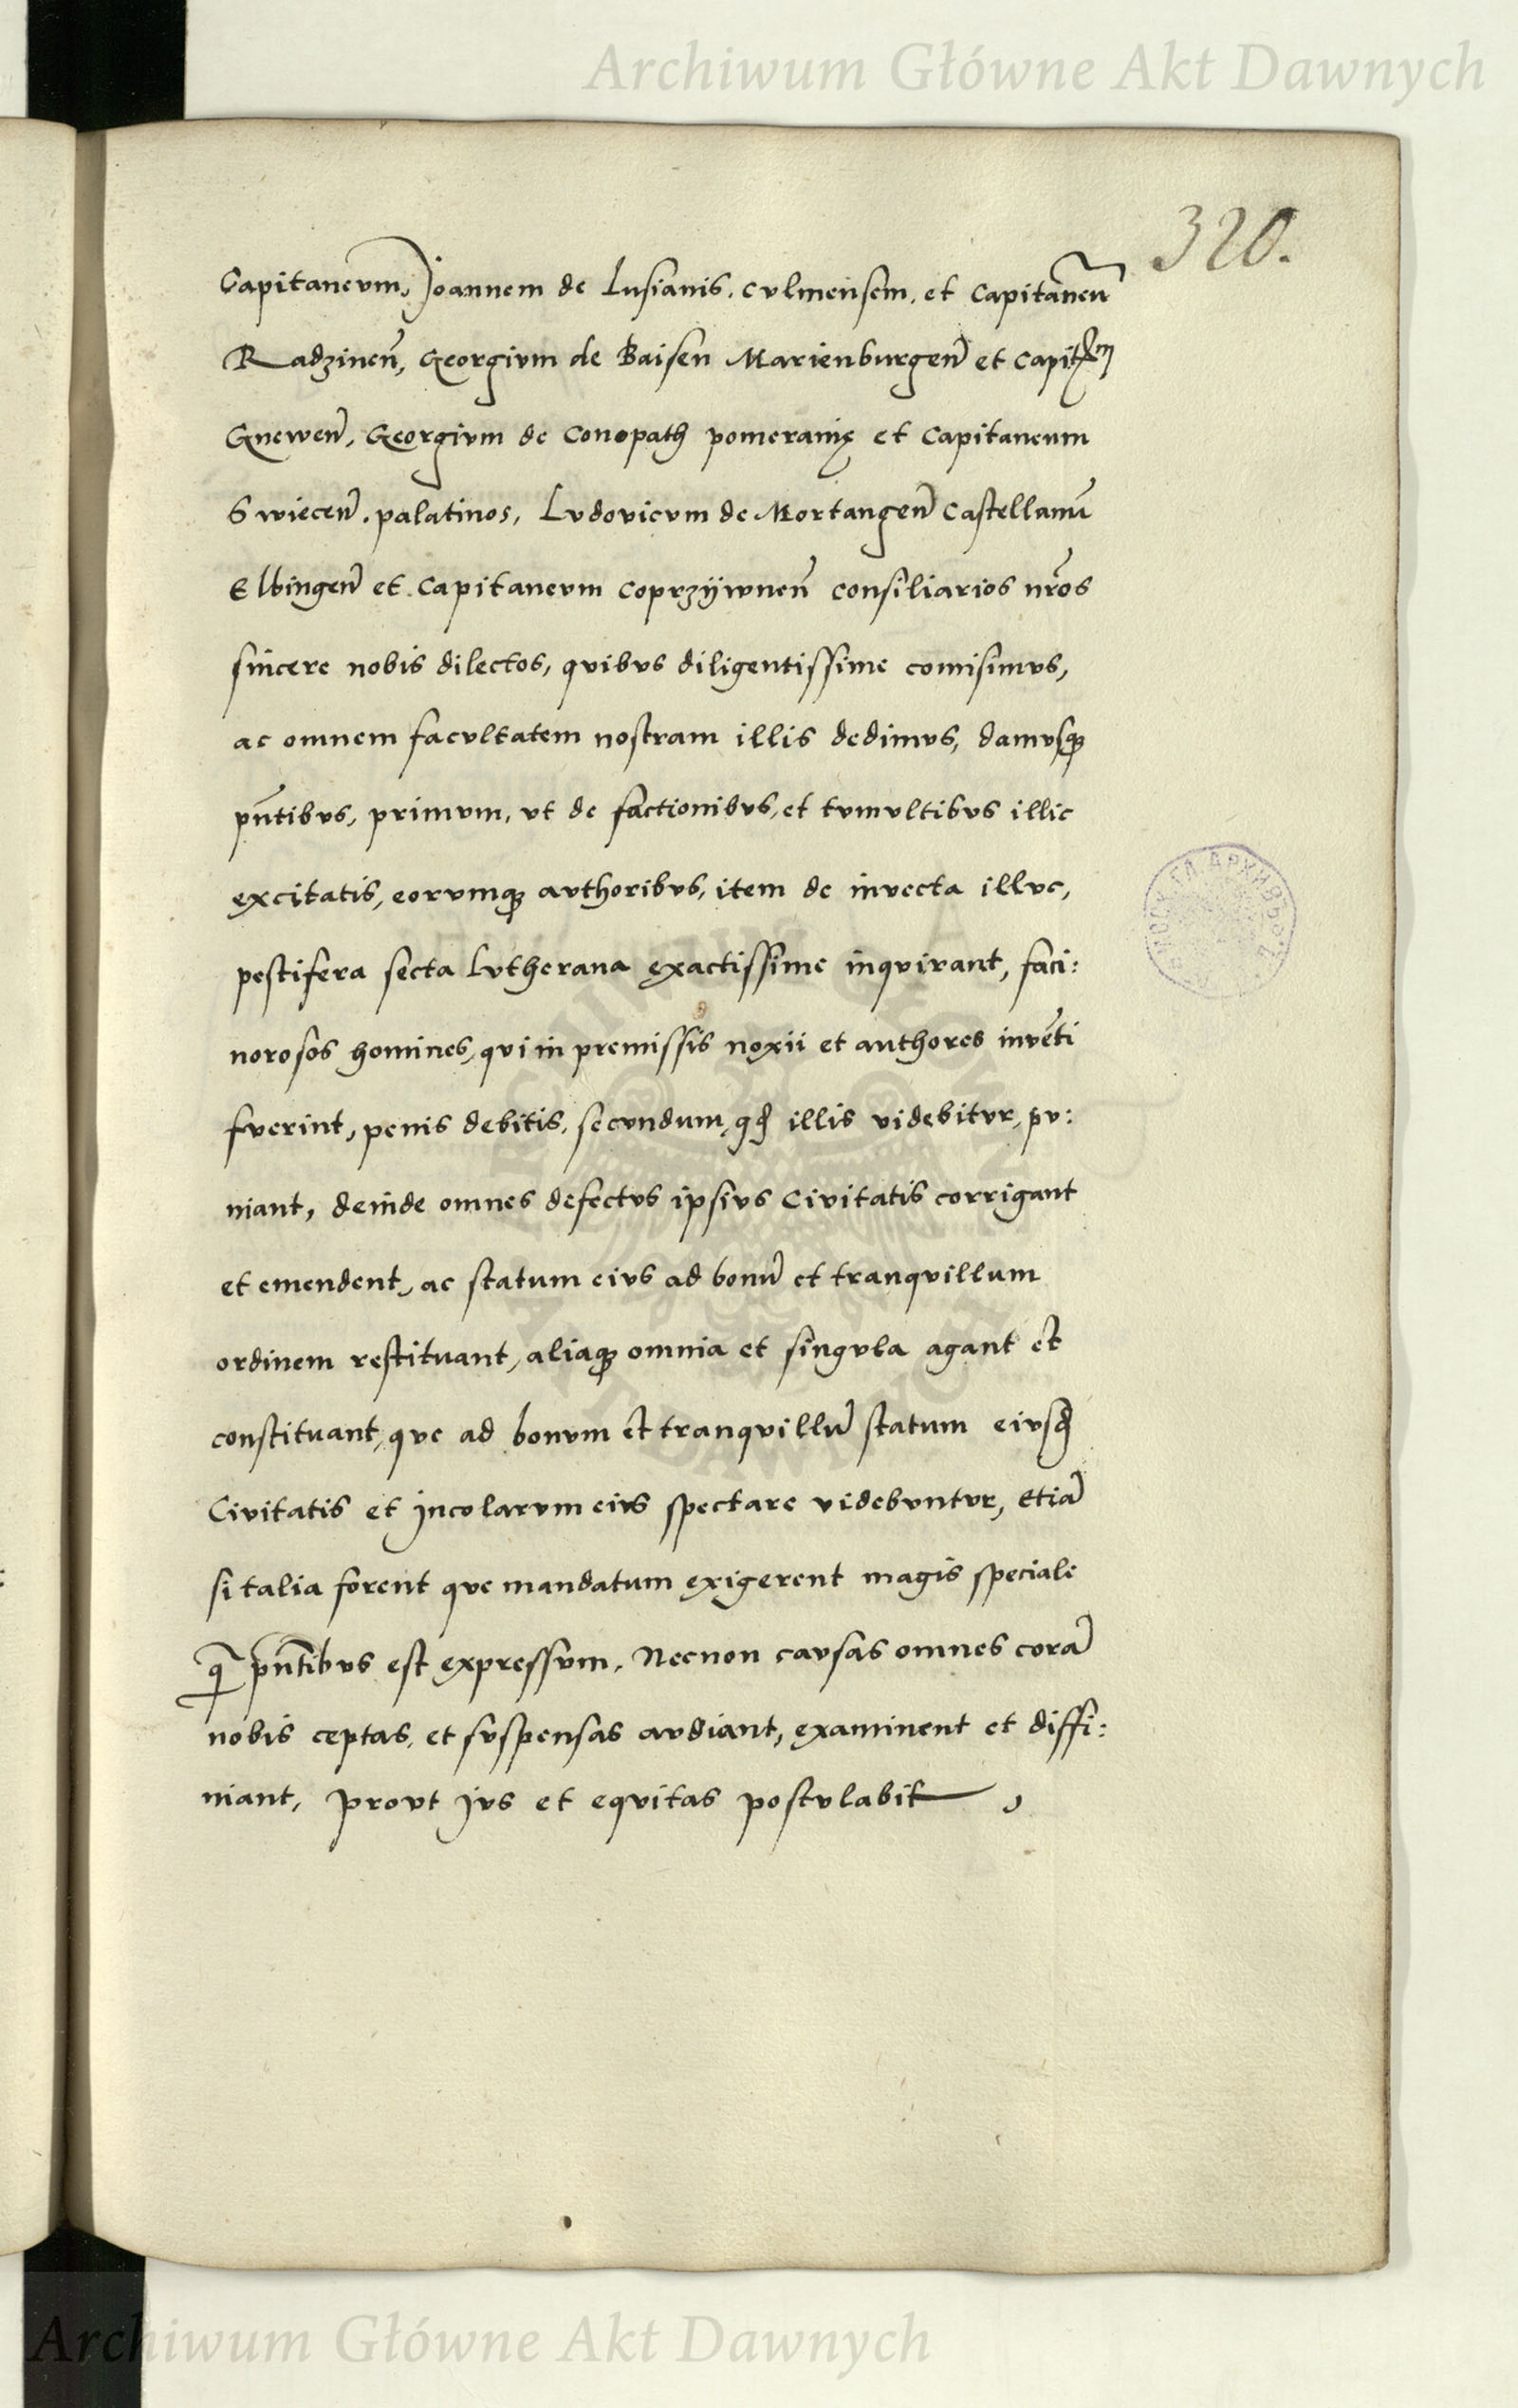 Archiwum Główne Akt Dawnych
320.
Capitaneum, Joannem de Lusianis, culmensem, et Capitaneū
Radzineñ, Georgium de Baisen Marienburgeñ et Capit
Gneweñ, Georgium de Conopath pomeranię et Capitaneum
Swieceñ. palatinos, Ludovicum de Mortangeñ Castellanū
Elbingeñ et Capitaneum Coprzÿwneñ consiliarios nr̃os
sincere nobis dilectos, quibus diligentissime com̃isimus,
ac omnem facultatem nostram illis dedimus, damusqꝫ
pñtibus, primum, ut de factionibus, et tumultibus illic
excitatis, eorumqꝫ authoribus, item de invecta illuc,
pestifera secta Lutherana exactissime inquirant, faci:
norosos homines, qui in premissis noxii et authores invēti
fuerint, penis debitis, secundum, qđ illis videbitur, pu:
niant, deinde omnes defectus ipsius Civitatis corrigant
et emendent, ac statum eius ad bonū et tranquillum
ordinem restituant, aliaqꝫ omnia et singula agant et
constituant, que ad bonum et tranquillū statum eiusđ
Civitatis et Incolarum eius spectare videbuntur, etiā
si talia forent que mandatum exigerent magis speciale
q̃ pñtibus est expressum, Necnon causas omnes corā
nobis ceptas, et suspensas audiant, examinent et diffi:
niant, prout Jus et equitas postulabit,
Archiwum Główne Akt Dawnych